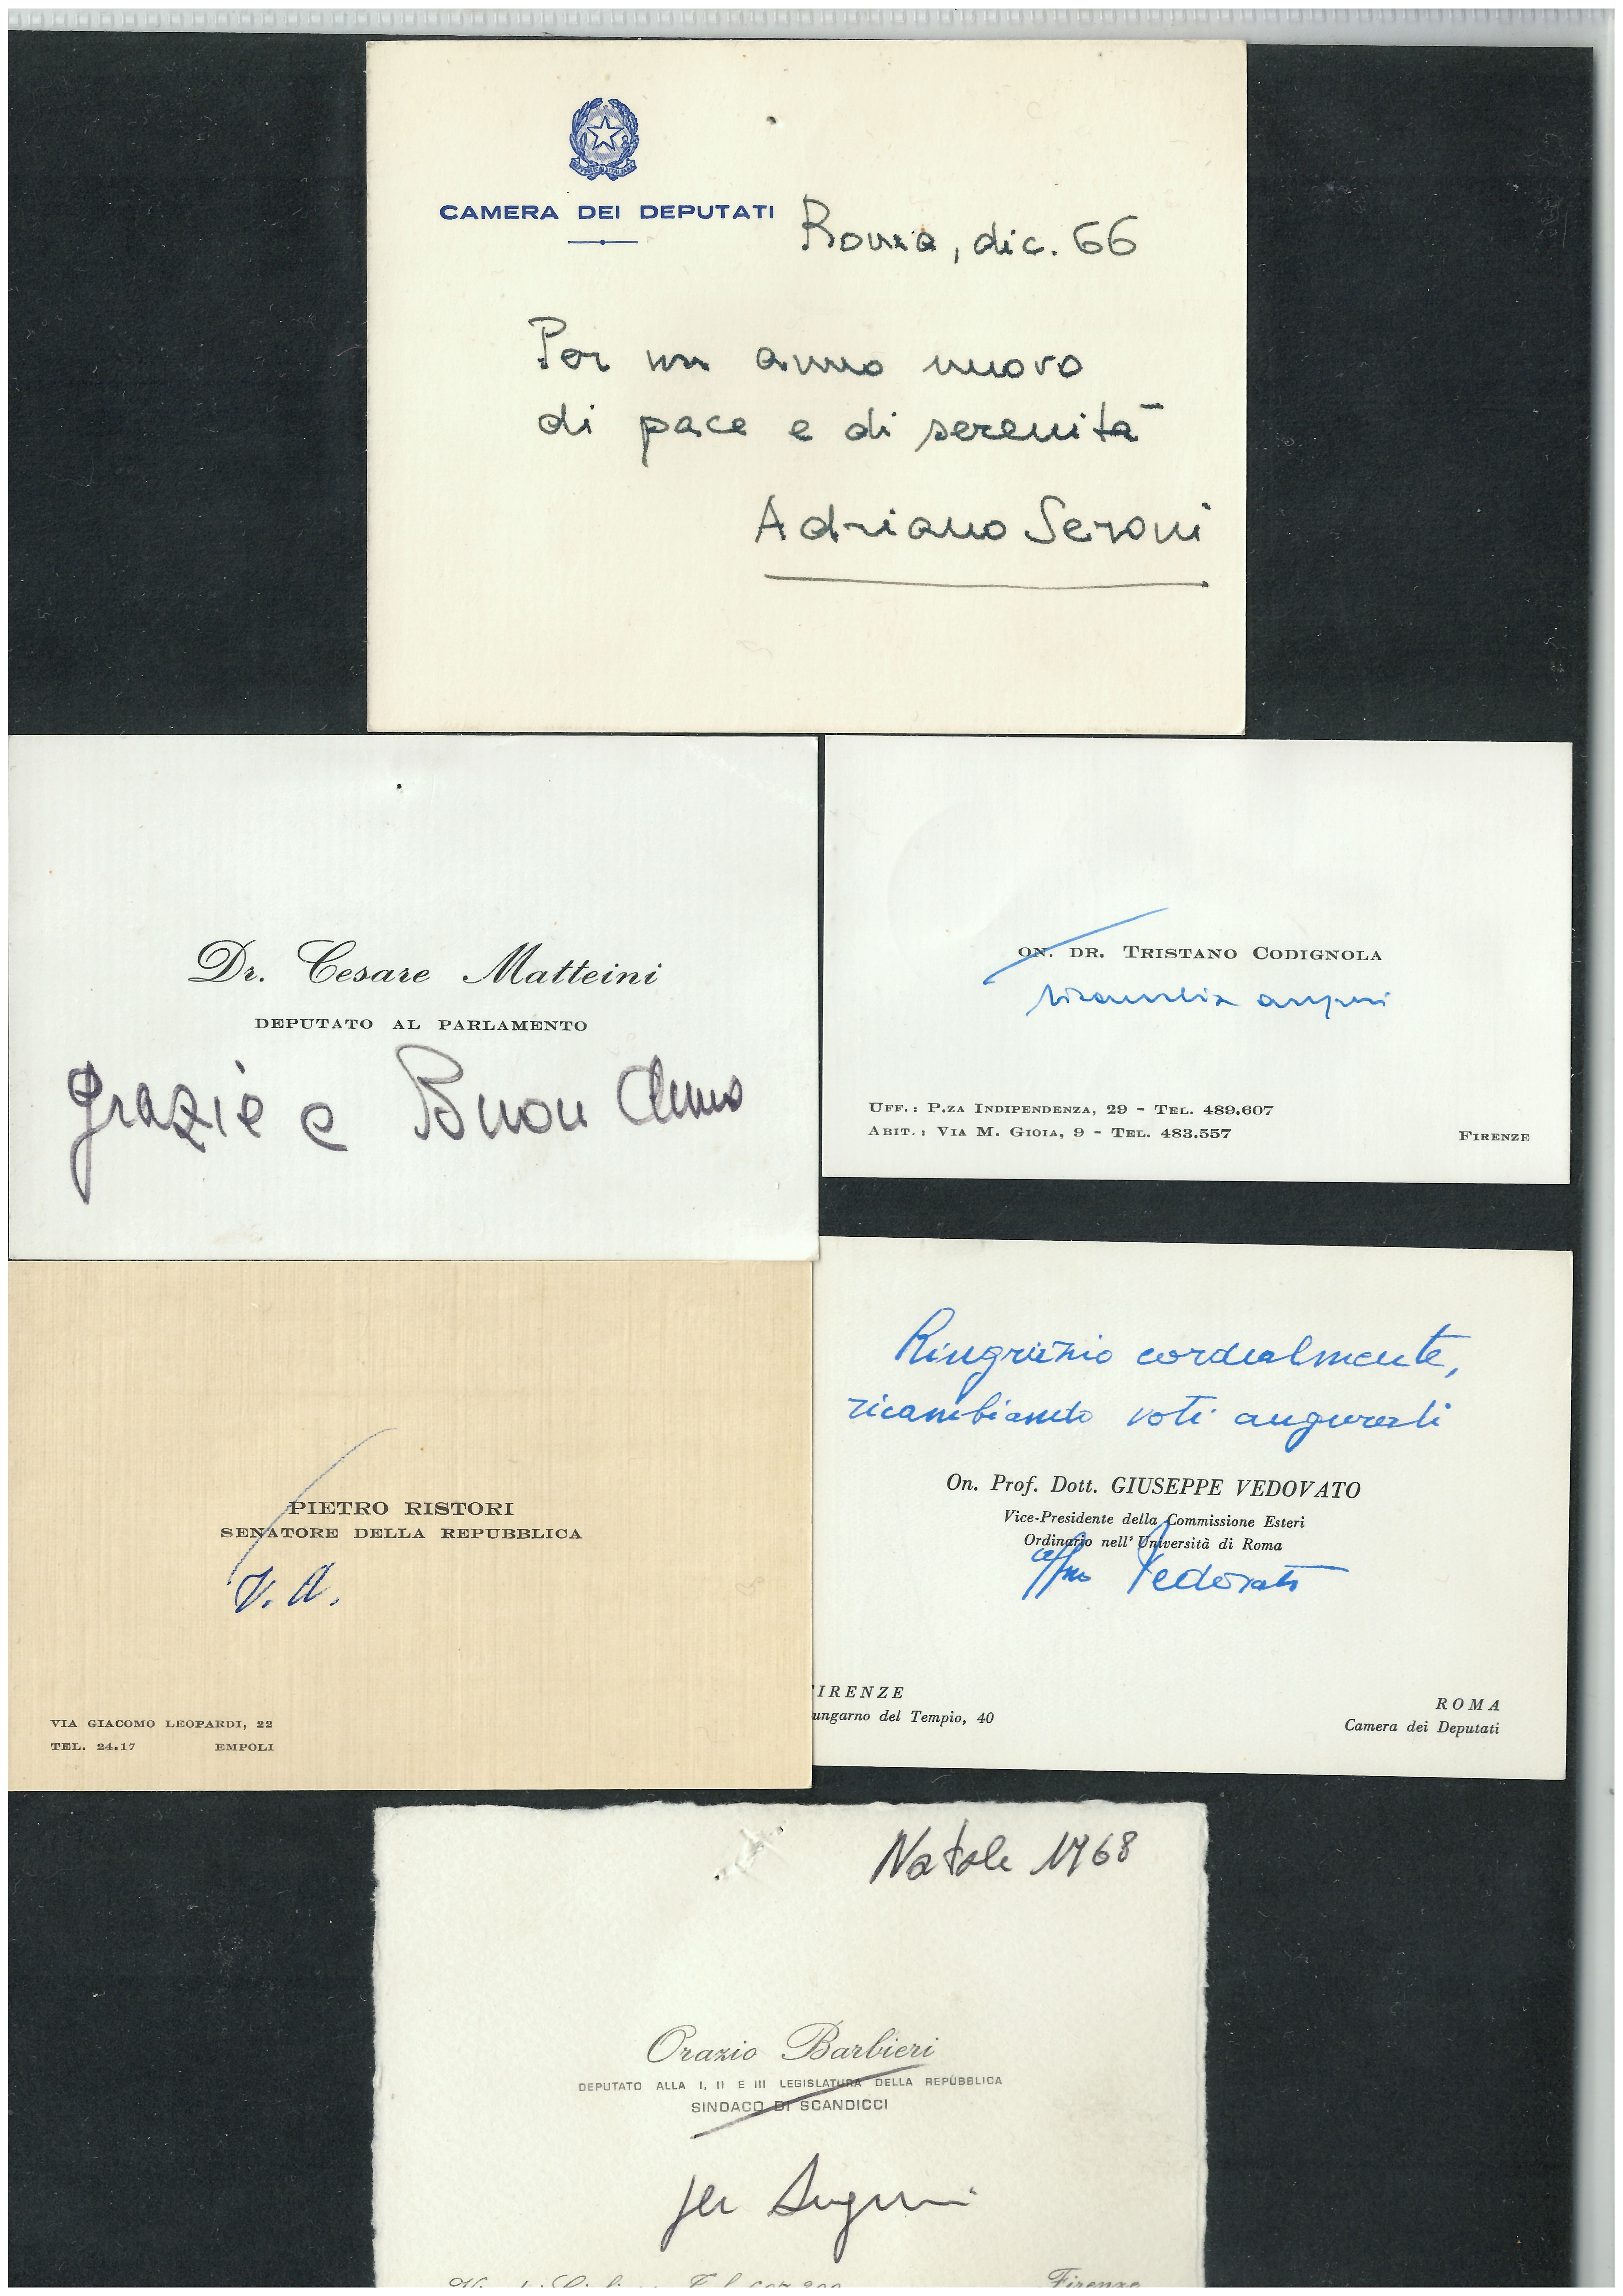 CAMERA DEI DEPUTATI
Roma, dic. 66
Per un anno nuovo
di pace e di serenità
Adriano Seroni
Dr. Cesare Matteini
DEPUTATO AL PARLAMENTO
grazie e Buon Anno
ON. DR. TRISTANO CODIGNOLA
ricambia auguri
UFF.: P.ZA INDIPENDENZA, 29 - TEL. 489.607
ABIT.: VIA M. GIOIA, 9 - TEL. 483.557
FIRENZE
PIETRO RISTORI
SENATORE DELLA REPUBBLICA
V. A.
VIA GIACOMO LEOPARDI, 22
TEL. 24.17 EMPOLI
Ringrazio cordialmente,
ricambiando voti augurali
On. Prof. Dott. GIUSEPPE VEDOVATO
Vice-Presidente della Commissione Esteri
Ordinario nell' Università di Roma
aff.mo Vedovato
IRENZE
ungarno del Tempio, 40
ROMA
Camera dei Deputati
Natale 1968
Orazio Barbieri
DEPUTATO ALLA I, II E III LEGISLATURA DELLA REPUBBLICA
SINDACO DI SCANDICCI
per Auguri
Firenze